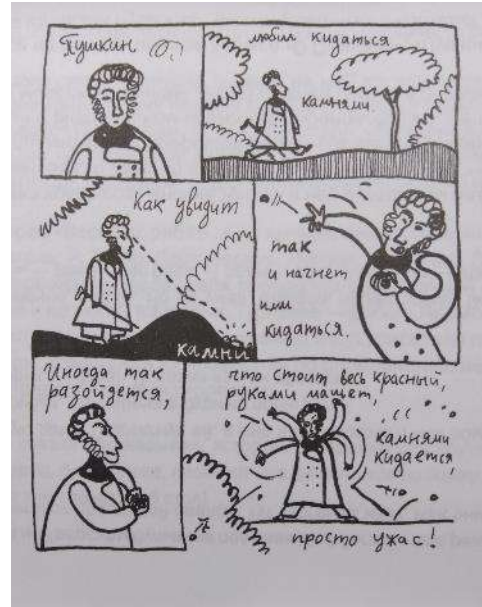 Пушкин
любил кидаться
камнями.
Как увидит
камни
так
и начнет
ими
кидаться.
Иногда так
разойдется,
что стоит весь красный,
руками машет,
камнями
кидается,
просто ужас!